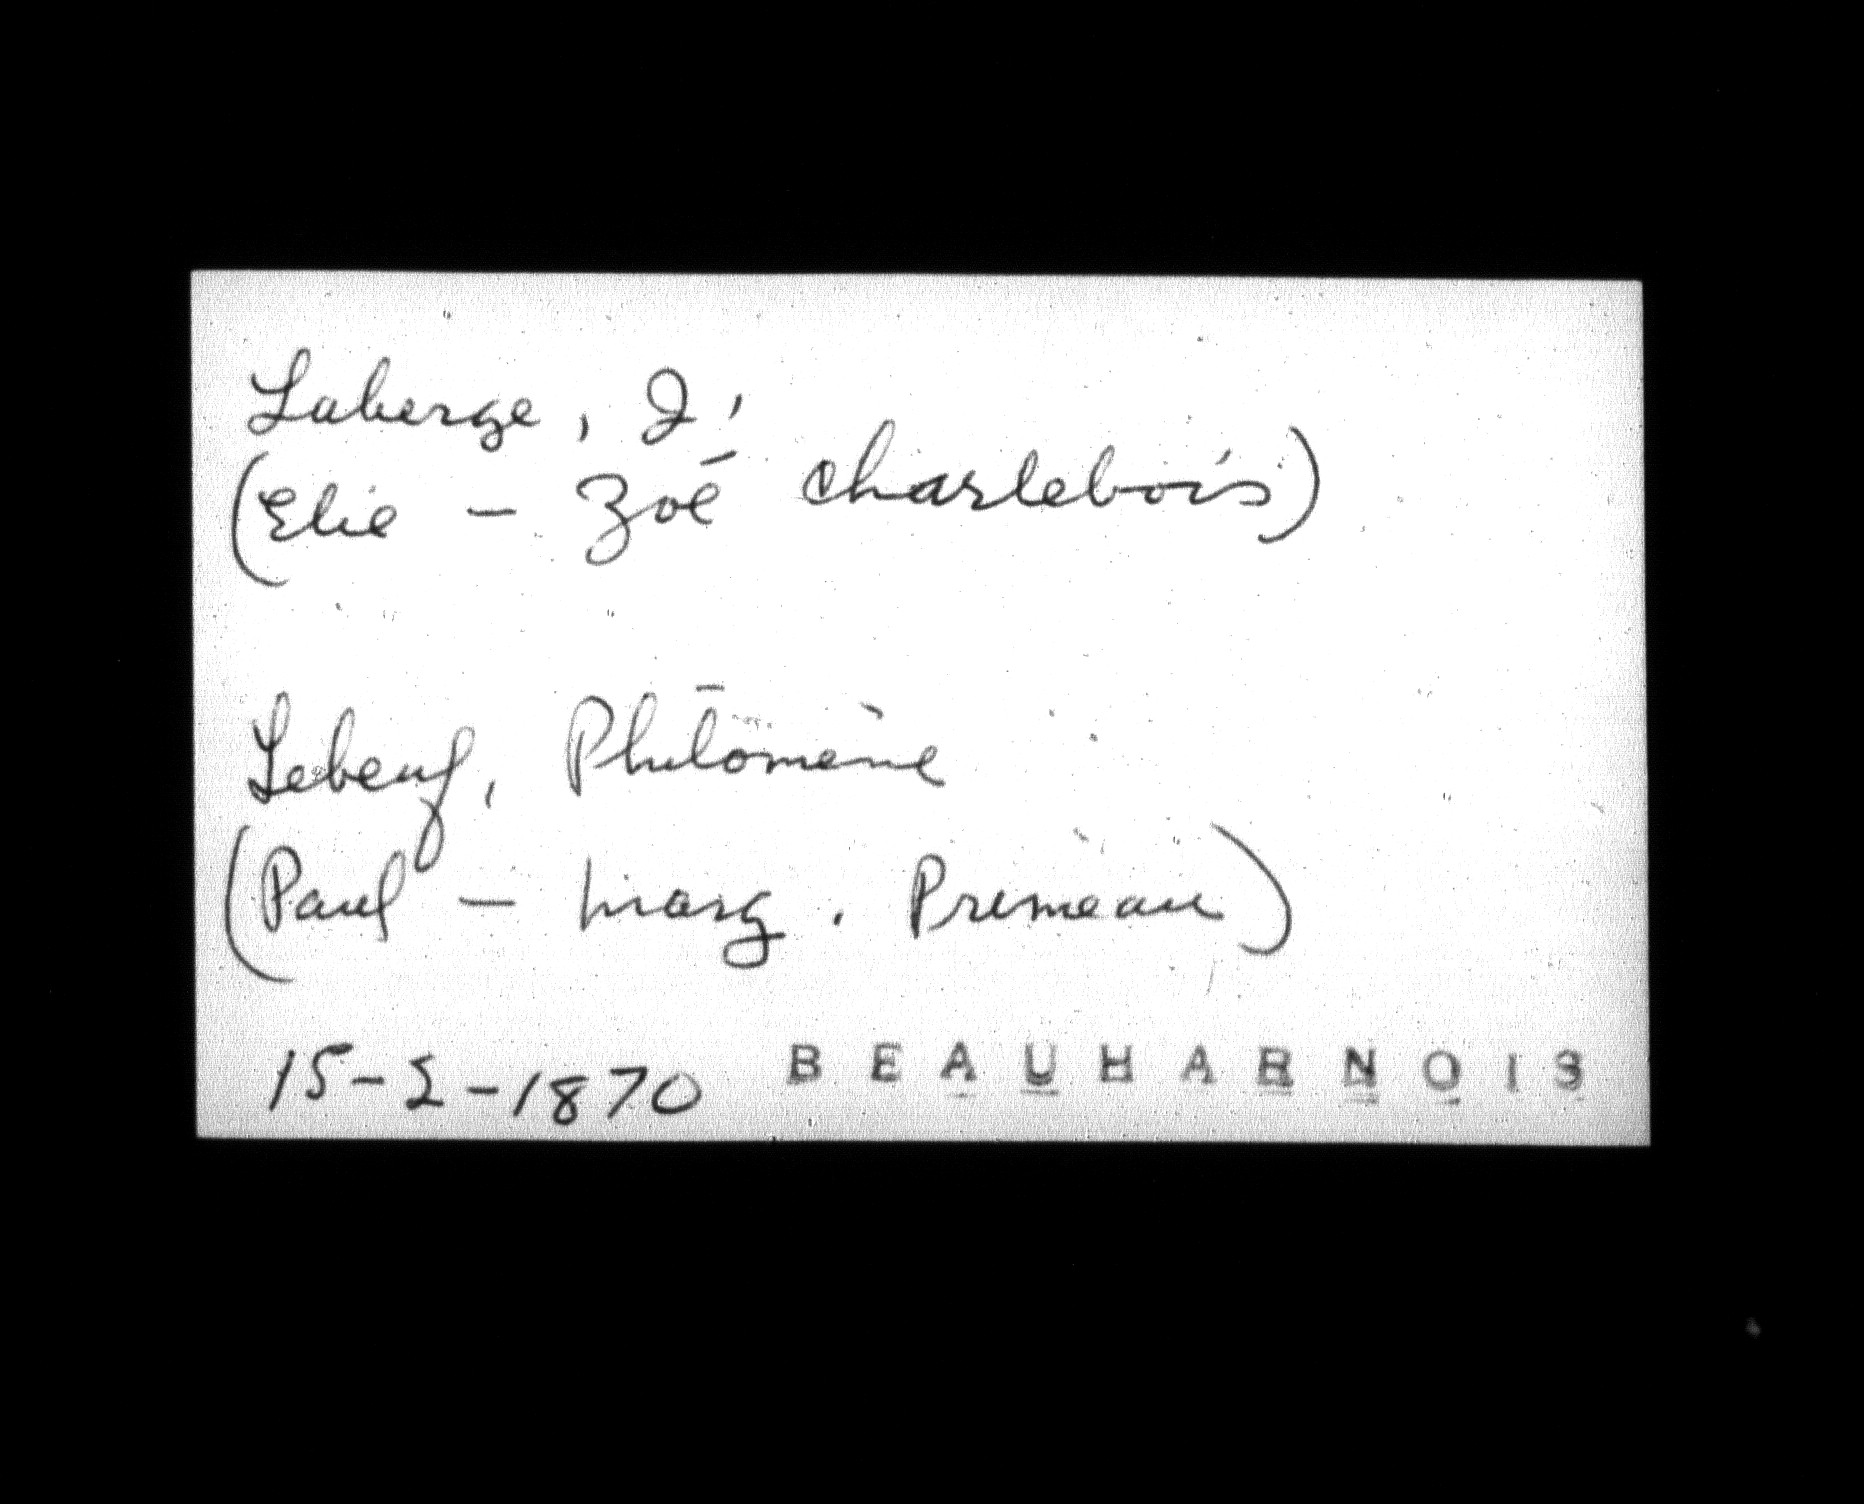 Laberge, J,
(Elie - Zoé Charlebois)
Lebeuf, Philomène
(Paul - Marg. Primeau)
15-2-1870 BEAUHARNOIS